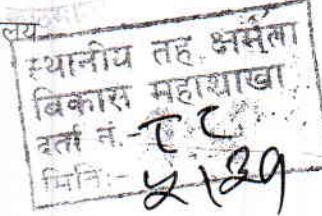 लय
स्थानीय तह क्षमता
विकास महाशाखा
दर्ता नं.- ८८
मिति:- ५।३१